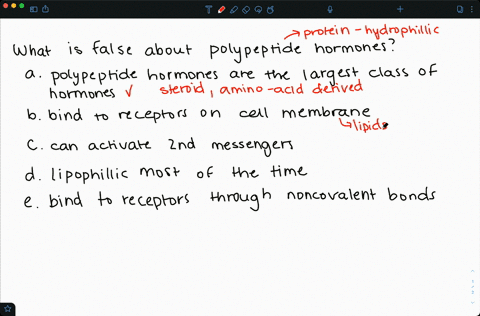 protein - hydrophillic
What is false about polypeptide hormones?
a. polypeptide hormones are the largest class of
hormones ✓ steroid, amino-acid derived
b. bind to receptors on cell membrane
lipids
c. can activate 2nd messengers
d. lipophillic most of the time
e. bind to receptors through noncovalent bonds